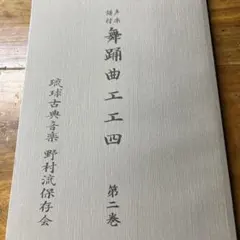 声楽譜付
舞踊曲工工四 第二巻
琉球古典音楽 野村流保存会